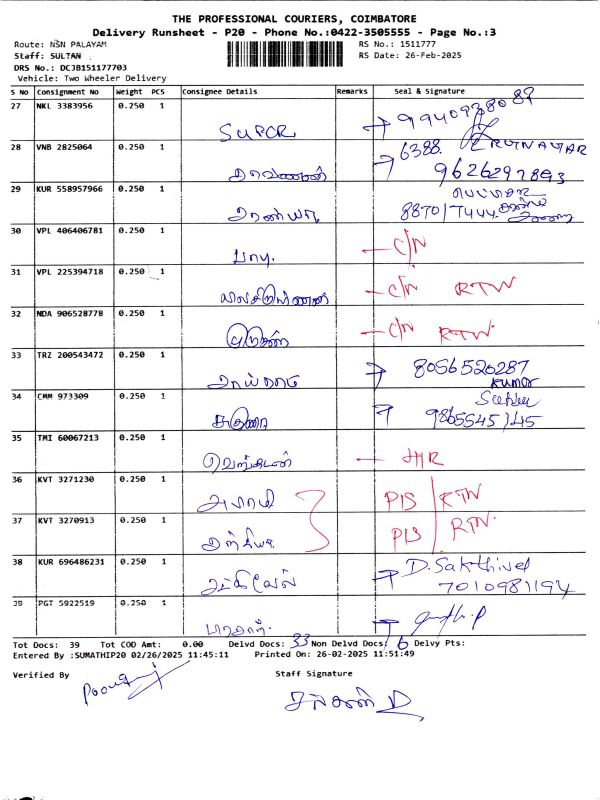 THE PROFESSIONAL COURIERS, COIMBATORE
Delivery Runsheet - P20 - Phone No.:0422-3505555 - Page No.:3
Route: NSN PALAYAM
RS No.: 1511777
Staff: SULTAN
RS Date: 26-Feb-2025
DRS No.: DC3B151177703
Vehicle: Two Wheeler Delivery
S No Consignment No Weight PCS Consignee Details Remarks Seal & Signature
27 NKL 3383956 0.250 1
SUPER 9940938089
28 VNB 2825064 0.250 1
6388.
சரவணன் 9626297893
29 KUR 558957966 0.250 1
சரண்யா 887017444
30 VPL 406406781 0.250 1
பாபு. C/N
31 VPL 225394718 0.250 1
C/N RTN
32 NDA 906528778 0.250 1
C/N RTN
33 TRZ 200543472 0.250 1
8056520287
KUMAR
34 CMM 973309 0.250 1
சுகுணா 9865545745
35 TMI 60067213 0.250 1
வெங்கடேசன்
36 KVT 3271230 0.250 1
அபிராமி PIS RTN
37 KVT 3270913 0.250 1
PIS RTN.
38 KUR 696486231 0.250 1
சக்திவேல் D.Sakthivel
7010981194
39 PGT 5922519 0.250 1
Tot Docs: 39 Tot COD Amt: 0.00 Delvd Docs: 33 Non Delvd Docs: 6 Delvy Pts:
Entered By :SUMATHIP20 02/26/2025 11:45:11 Printed On: 26-02-2025 11:51:49
Verified By Staff Signature